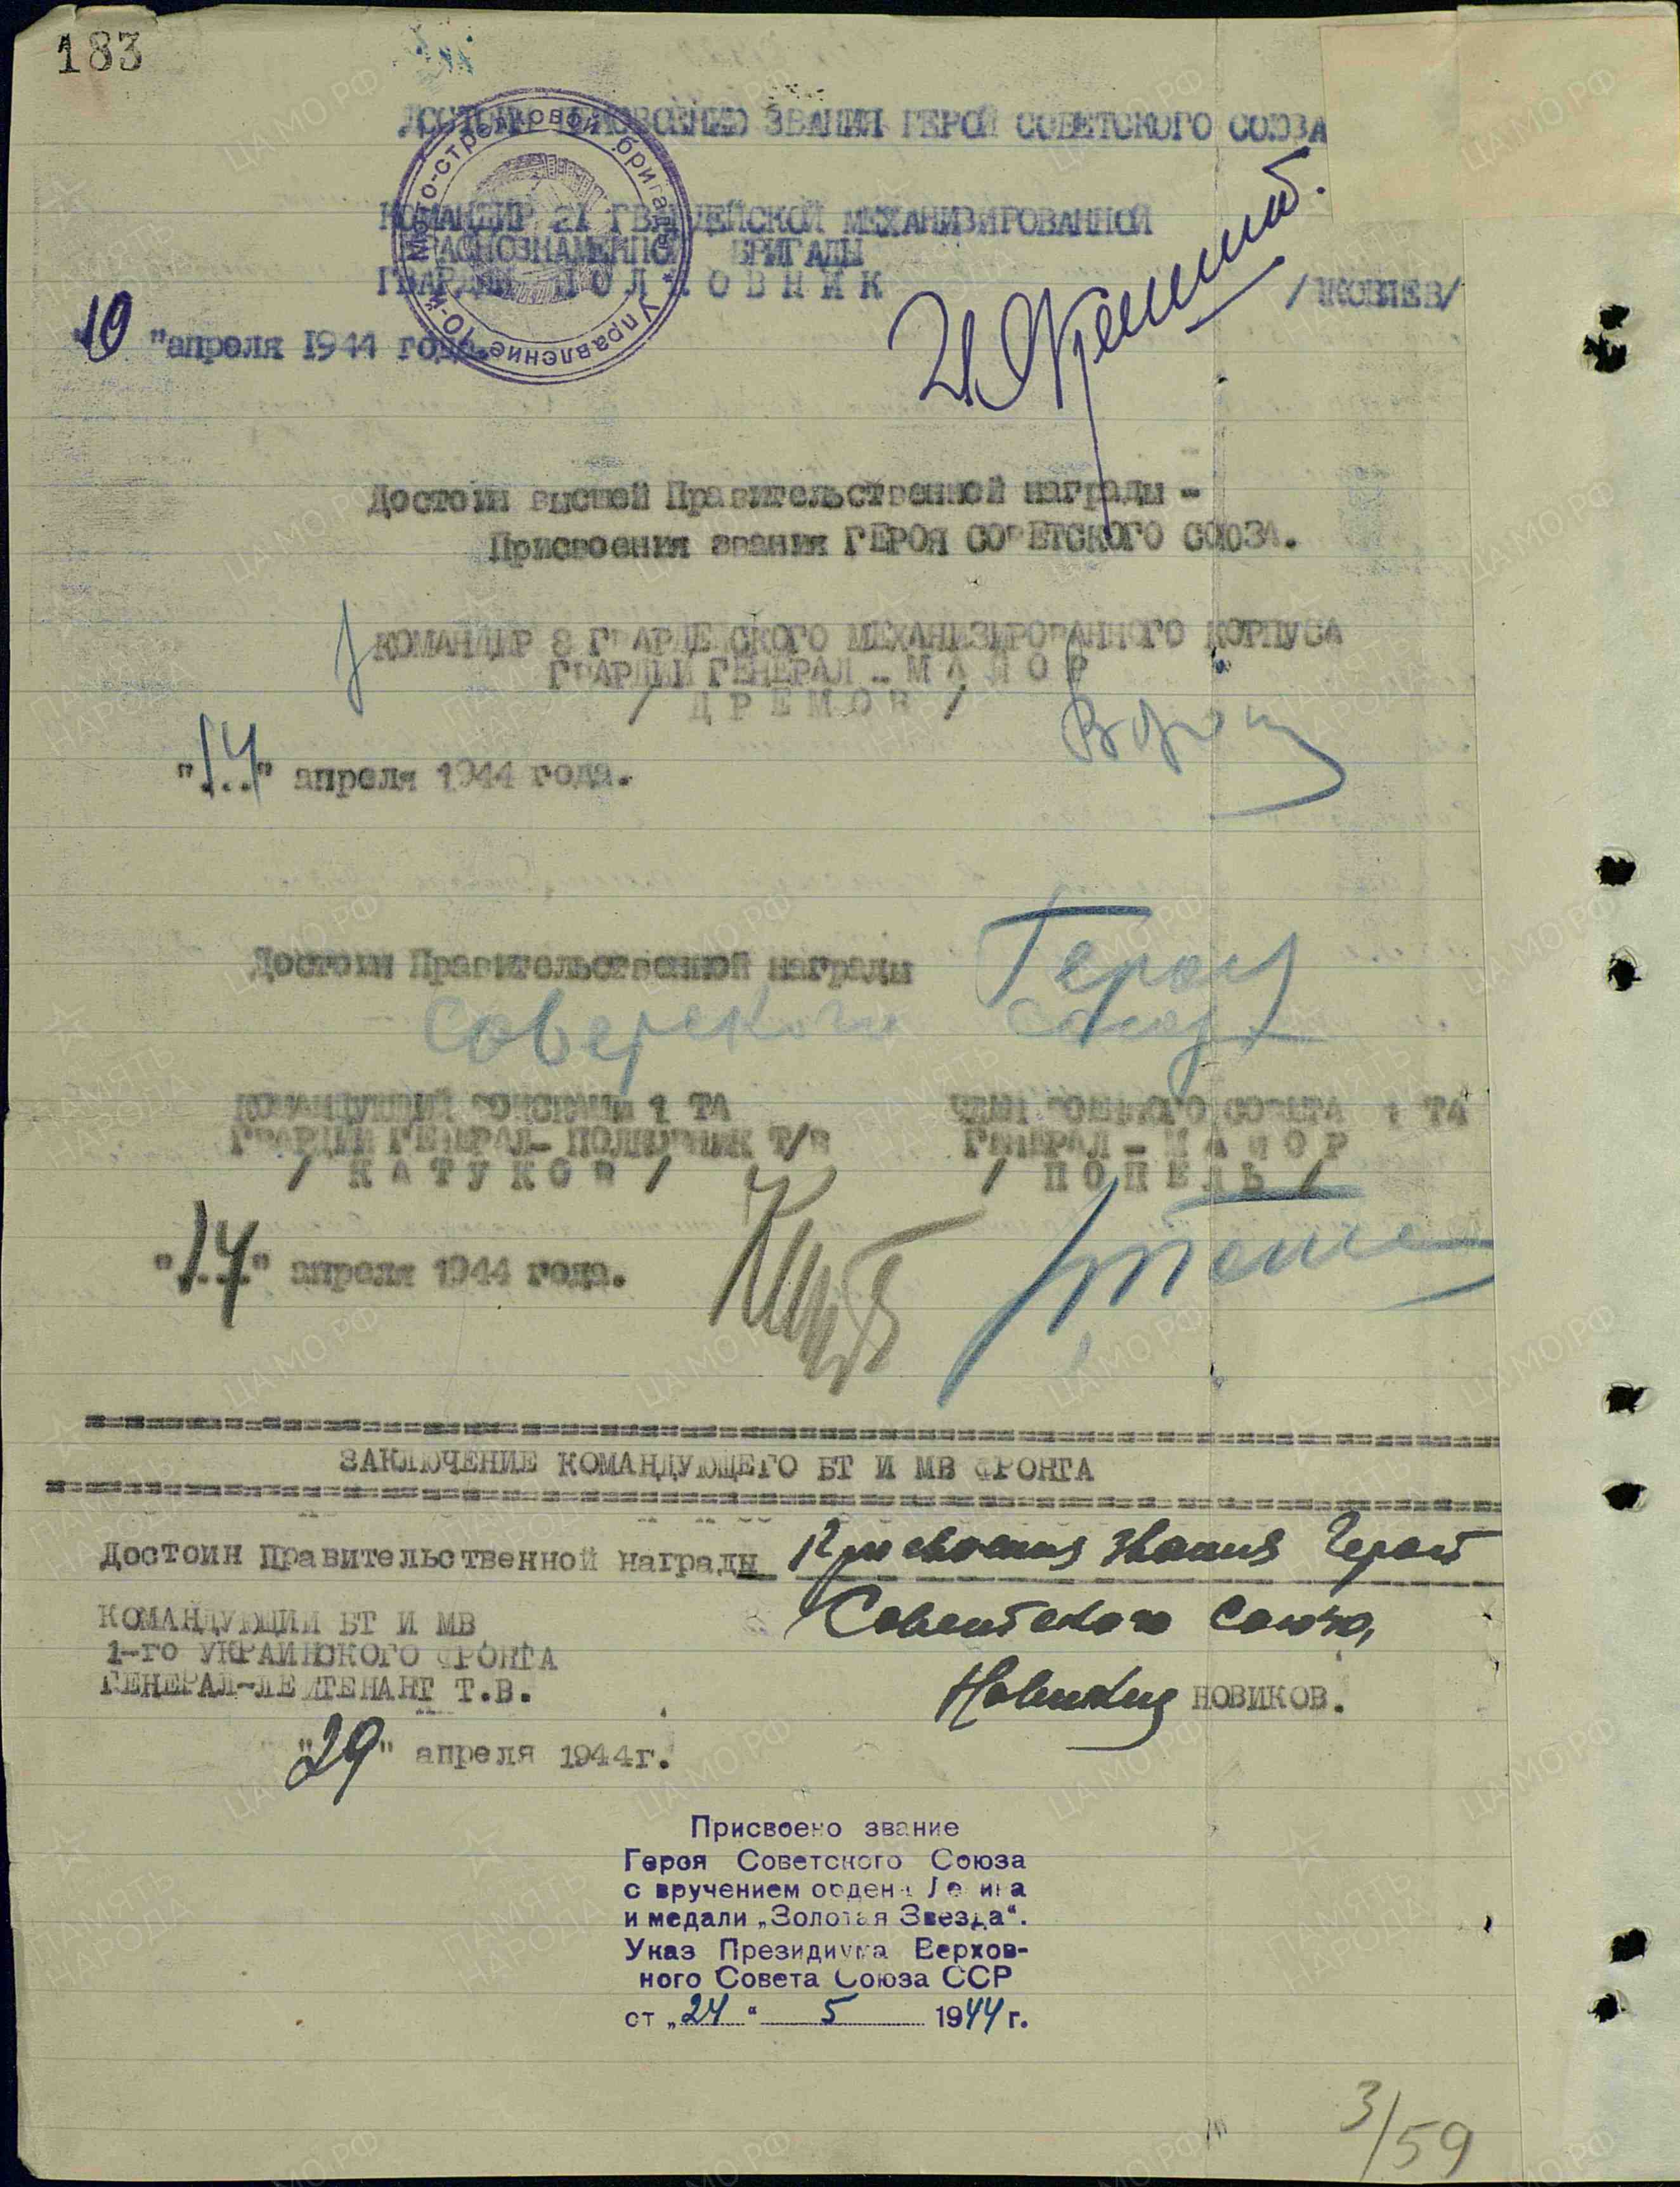 183
ДОСТОИН ПРИСВОЕНИЮ ЗВАНИЯ ГЕРОЙ СОВЕТСКОГО СОЮЗА
КОМАНДИР 21 ГВАРДЕЙСКОЙ МЕХАНИЗИРОВАННОЙ
КРАСНОЗНАМЕННОЙ БРИГАДЫ
ГВАРДИИ ПОЛКОВНИК
/ЯКОВЛЕВ/
Управление 10-й Мото-стрелковой бригады
"10" апреля 1944 года.
Достоин высшей Правительственной награды -
Присвоения звания ГЕРОЯ СОВЕТСКОГО СОЮЗА.
КОМАНДИР 8 ГВАРДЕЙСКОГО МЕХАНИЗИРОВАННОГО КОРПУСА
ГВАРДИИ ГЕНЕРАЛ - МАЙОР
/ ДРЕМОВ /
"14" апреля 1944 года.
Достоин Правительственной награды Героя
Советского Союза
КОМАНДУЮЩИЙ ВОЙСКАМИ 1 ТА
ГВАРДИИ ГЕНЕРАЛ-ПОЛКОВНИК Т/В
/ КАТУКОВ /
ЧЛЕН ВОЕННОГО СОВЕТА 1 ТА
ГЕНЕРАЛ - МАЙОР
/ ПОПЕЛЬ /
"14" апреля 1944 года.
ЗАКЛЮЧЕНИЕ КОМАНДУЮЩЕГО БТ И МВ ФРОНТА
Достоин Правительственной награды Присвоения звания Герой
Советского Союза,
КОМАНДУЮЩИЙ БТ И МВ
1-го УКРАИНСКОГО ФРОНТА
ГЕНЕРАЛ-ЛЕЙТЕНАНТ Т.В.
Новиков НОВИКОВ.
"29" апреля 1944г.
Присвоено звание
Героя Советского Союза
с вручением ордена Ленина
и медали „Золотая Звезда“.
Указ Президиума Верхов-
ного Совета Союза ССР
от „24“ 5 1944 г.
3/59
ПАМЯТЬ НАРОДА
ЦА МО РФ